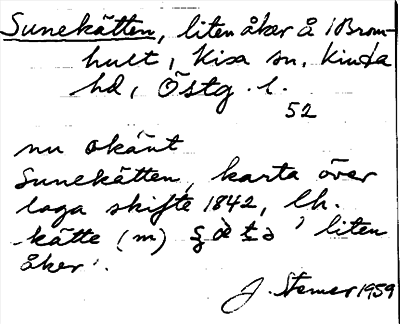 Sunekätten, liten åker å Brom-
hult, Kisa sn, Kinda
hd, Östg. l.
52
nu okänt
Sunekätten, karta över
laga skifte 1842, lh.
-kätte (m) 'liten
åker'.
J. Stemer 1959